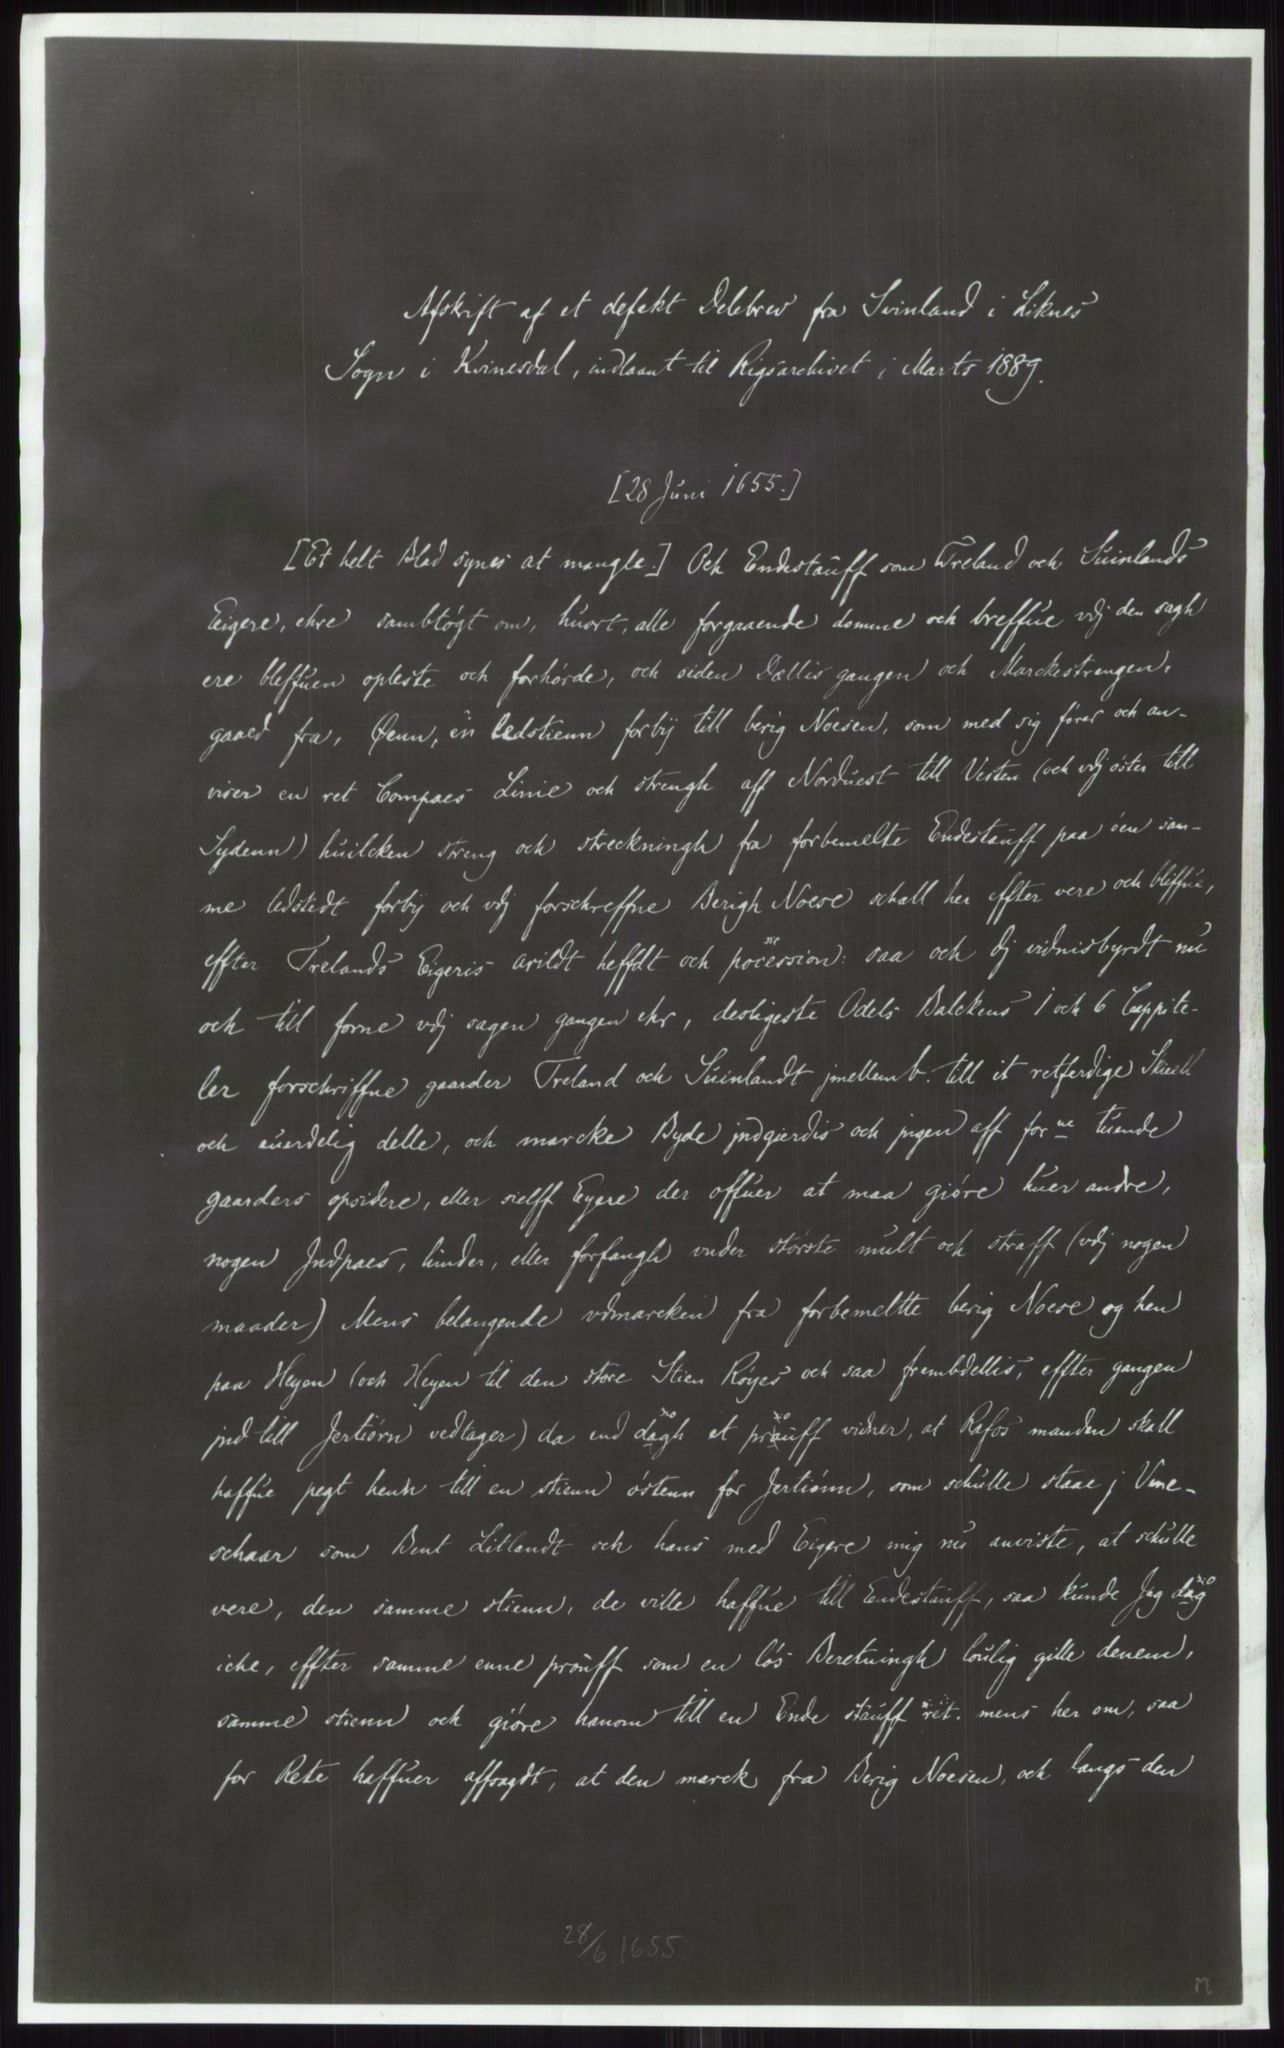 Afskrift af et defekt Delebrev fra Svinland i Liknes
Sogn i Kvinesdal, indlaant til Rigsarchivet i Marts 1889.
[28 Juni 1655.]
[Et helt Blad synes at mangle.] Och Endestauff som Treland och Suinlands
Eigere, ehre sambtøgt om, huort, alle forgaaende domme och breffue vdj den sagh
ere bleffuen opleste och forhørde, och siden Dællis gangen och Marckestrengen,
gaaed fra, Øenn, en ledstienn forbÿ till berig Noesen, som med sig fører och an-
viser en ret Compaes Linie och strengh aff Norduest till Vesten (och vdj øster till
Sydenn) huilcken streng och streckningh fra forbemelte Endestauff paa øen sam-
me ledstedt forbÿ och vdj forschreffne Berigh Noese schall her effter vere och bliffue,
effter Trelands Eigeris arildt heffdt och pocession: saa och dj vidnisbyrdt nu
sic
och till forne vdj sagen gangen ehr, desligeste Odels Balckens 1 och 6 Cappite-
ler forschriffne gaarder Treland och Suinlandt jmellem b. till it retferdige Skiell
och euerdelig delle, och marcke Byde jndgierdis och jngen aff forne tuende
gaarders opsidere, eller sielff Eyere der offuer at maa giøre huer andre,
nogen Jndpaes, hinder, eller forfangh vnder største mult och straff (vdj nogen
maader) Mens belangende vdmarcken fra forbemeltte berig Noese og hen
paa Heyen (och Heyen til den store Stien Røyes och saa frembdellis, effter gangen
jnd till Jertiørn vedtager) da end dagh et prauff vidner, at Rafos manden skall
haffue pegt henn till en stienn østenn for Jertiønn, som schulle staae j Vine-
schaar som Bent Litlandt och hans med Eigere mig nu anviste, at schulle
vere, den samme stienn, de ville haffue till Endestauff, saa kunde Jag dag
iche, effter samme enne prouff som en løs Beretningh loulig gille denem,
samme stienn och giøre hanom till en Ende stauff ret. mens her om, saa
for Rete haffuer affsagdt, at den marck fra Berig Noesen, och langs den
28/6 1655